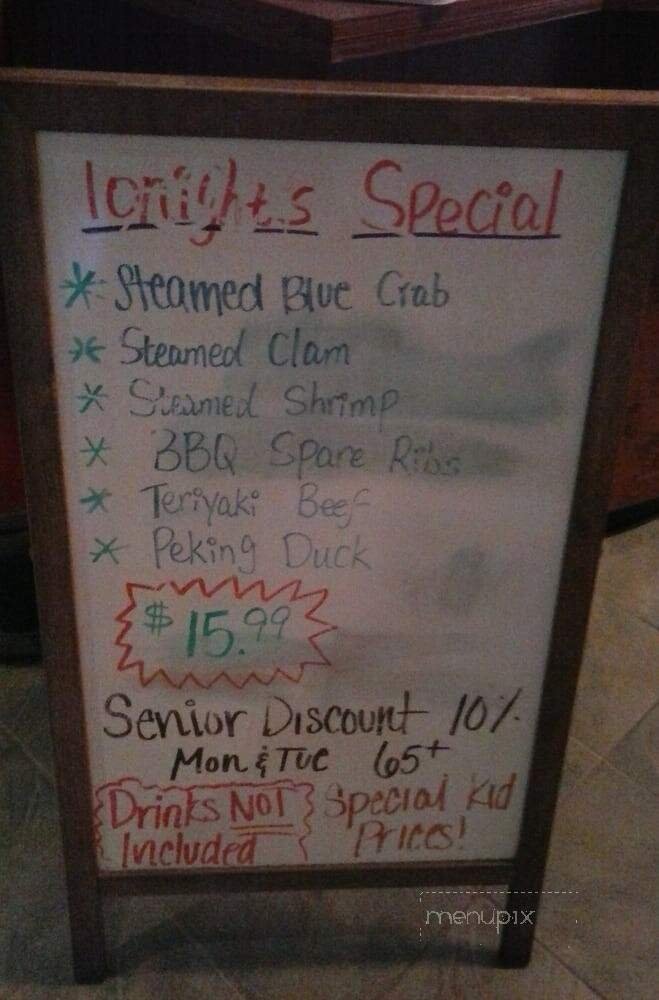 Tonights Special
* Steamed Blue Crab
* Steamed Clam
* Steamed Shrimp
* BBQ Spare Ribs
* Teriyaki Beef
* Peking Duck
$15.99
Senior Discount 10%
Mon & Tue 65+
Drinks NOT
Included
Special Kid
Prices!
menupix